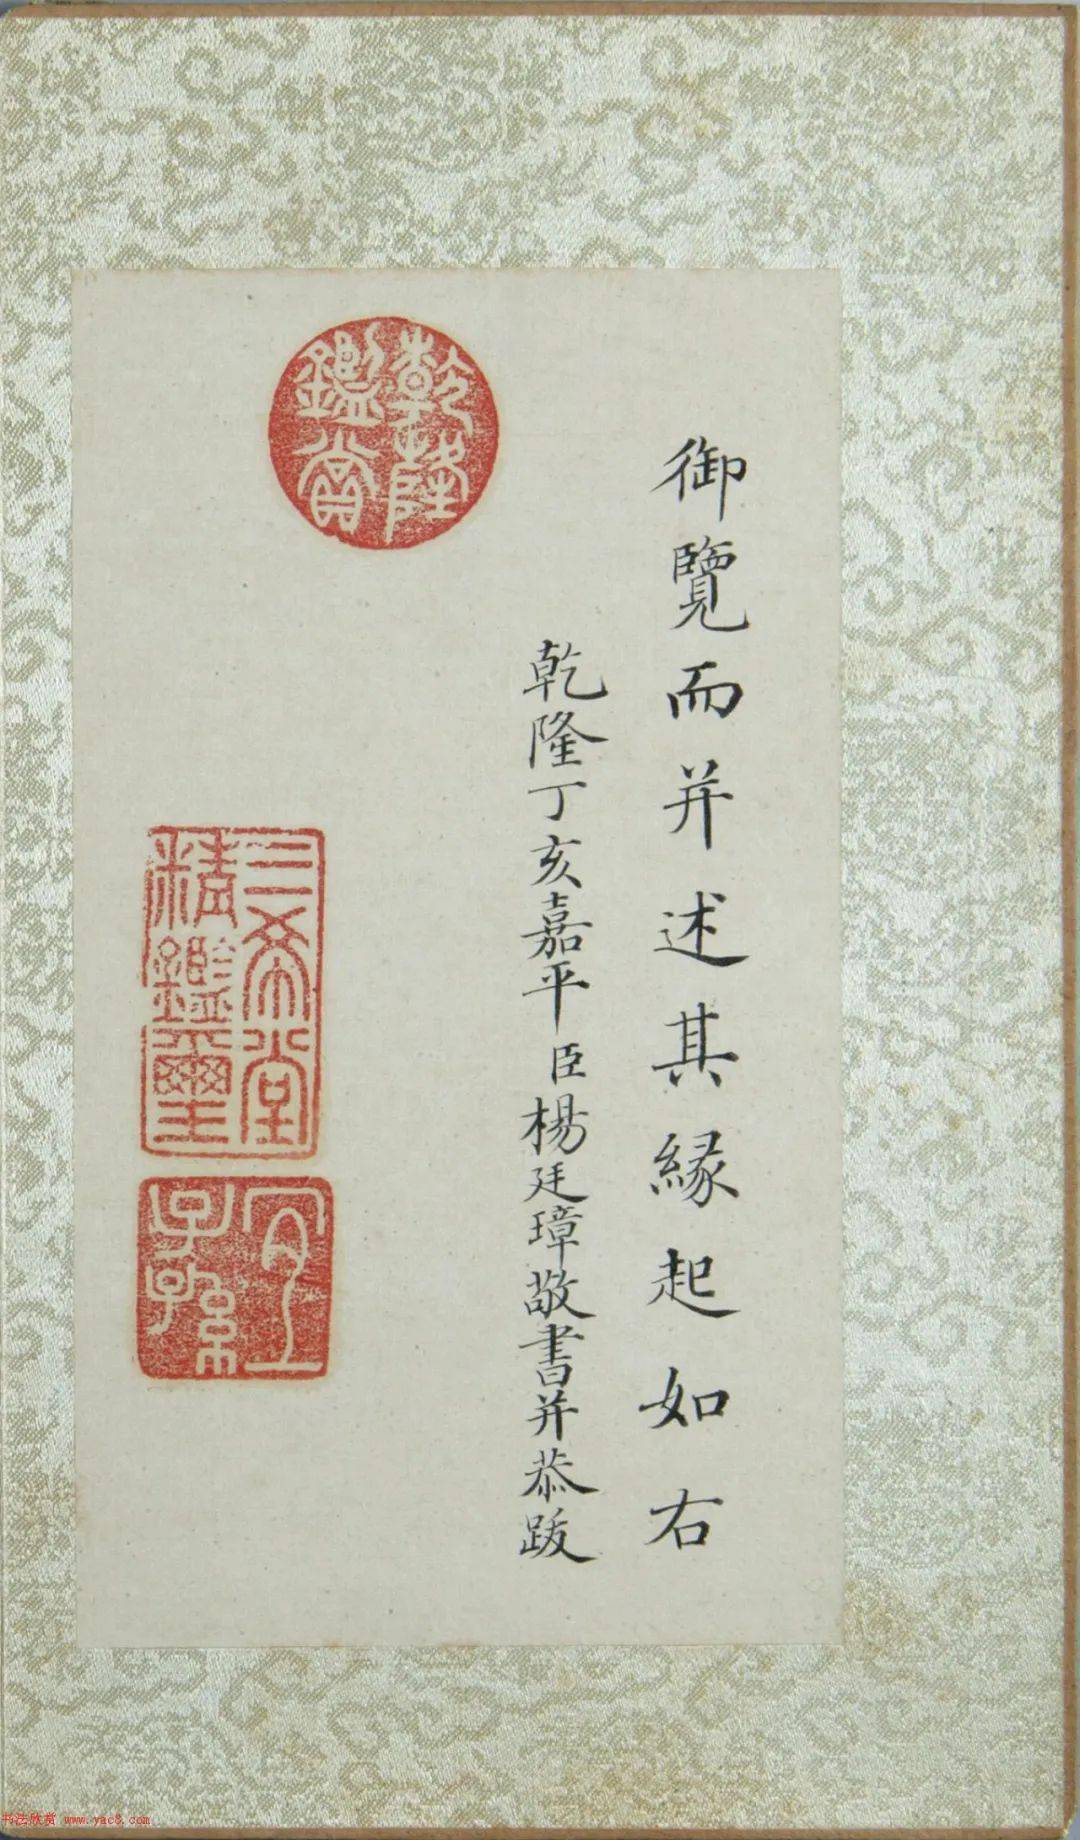 御覽而并述其緣起如右
乾隆丁亥嘉平臣楊廷璋敬書并恭跋
乾隆
鑑賞
三希堂
精鑑璽
宜
子孫
书法欣赏 www.yac8.com